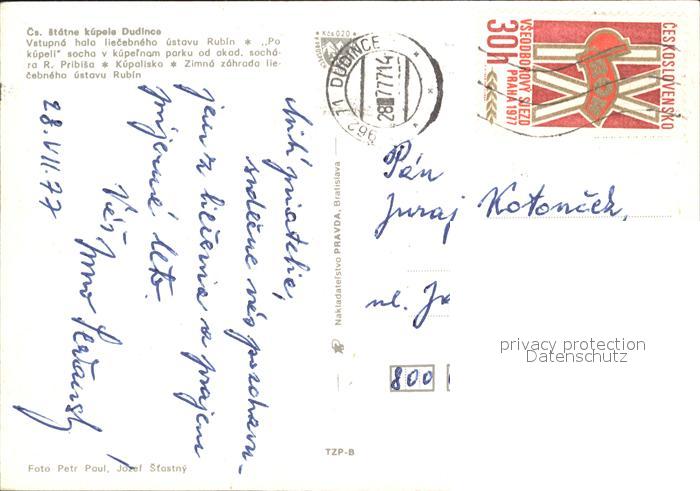 Čs. štátne kúpele Dudince
Vstupná hala liečebného ústavu Rubín * „Po
kúpeli" socha v kúpeľnom parku od akad. sochá-
ra R. Pribiša * Kúpalisko * Zimná záhrada lie-
čebného ústavu Rubín
Kčs 0,20
962 71 DUDINCE
28.7.77-14
ČESKOSLOVENSKO
VŠEODBOROVÝ SJEZD
PRAHA 1977
30h
IX
ROH
Milí priatelia,
srdečne vás pozdravu-
jem z liečenia a prajem
príjemné leto.
Váš
28.VII.77
Nakladateľstvo PRAVDA, Bratislava
Pán
Juraj Kotonček,
ul. Ja
800
privacy protection
Datenschutz
TZP-B
Foto Petr Paul, Jozef Šťastný